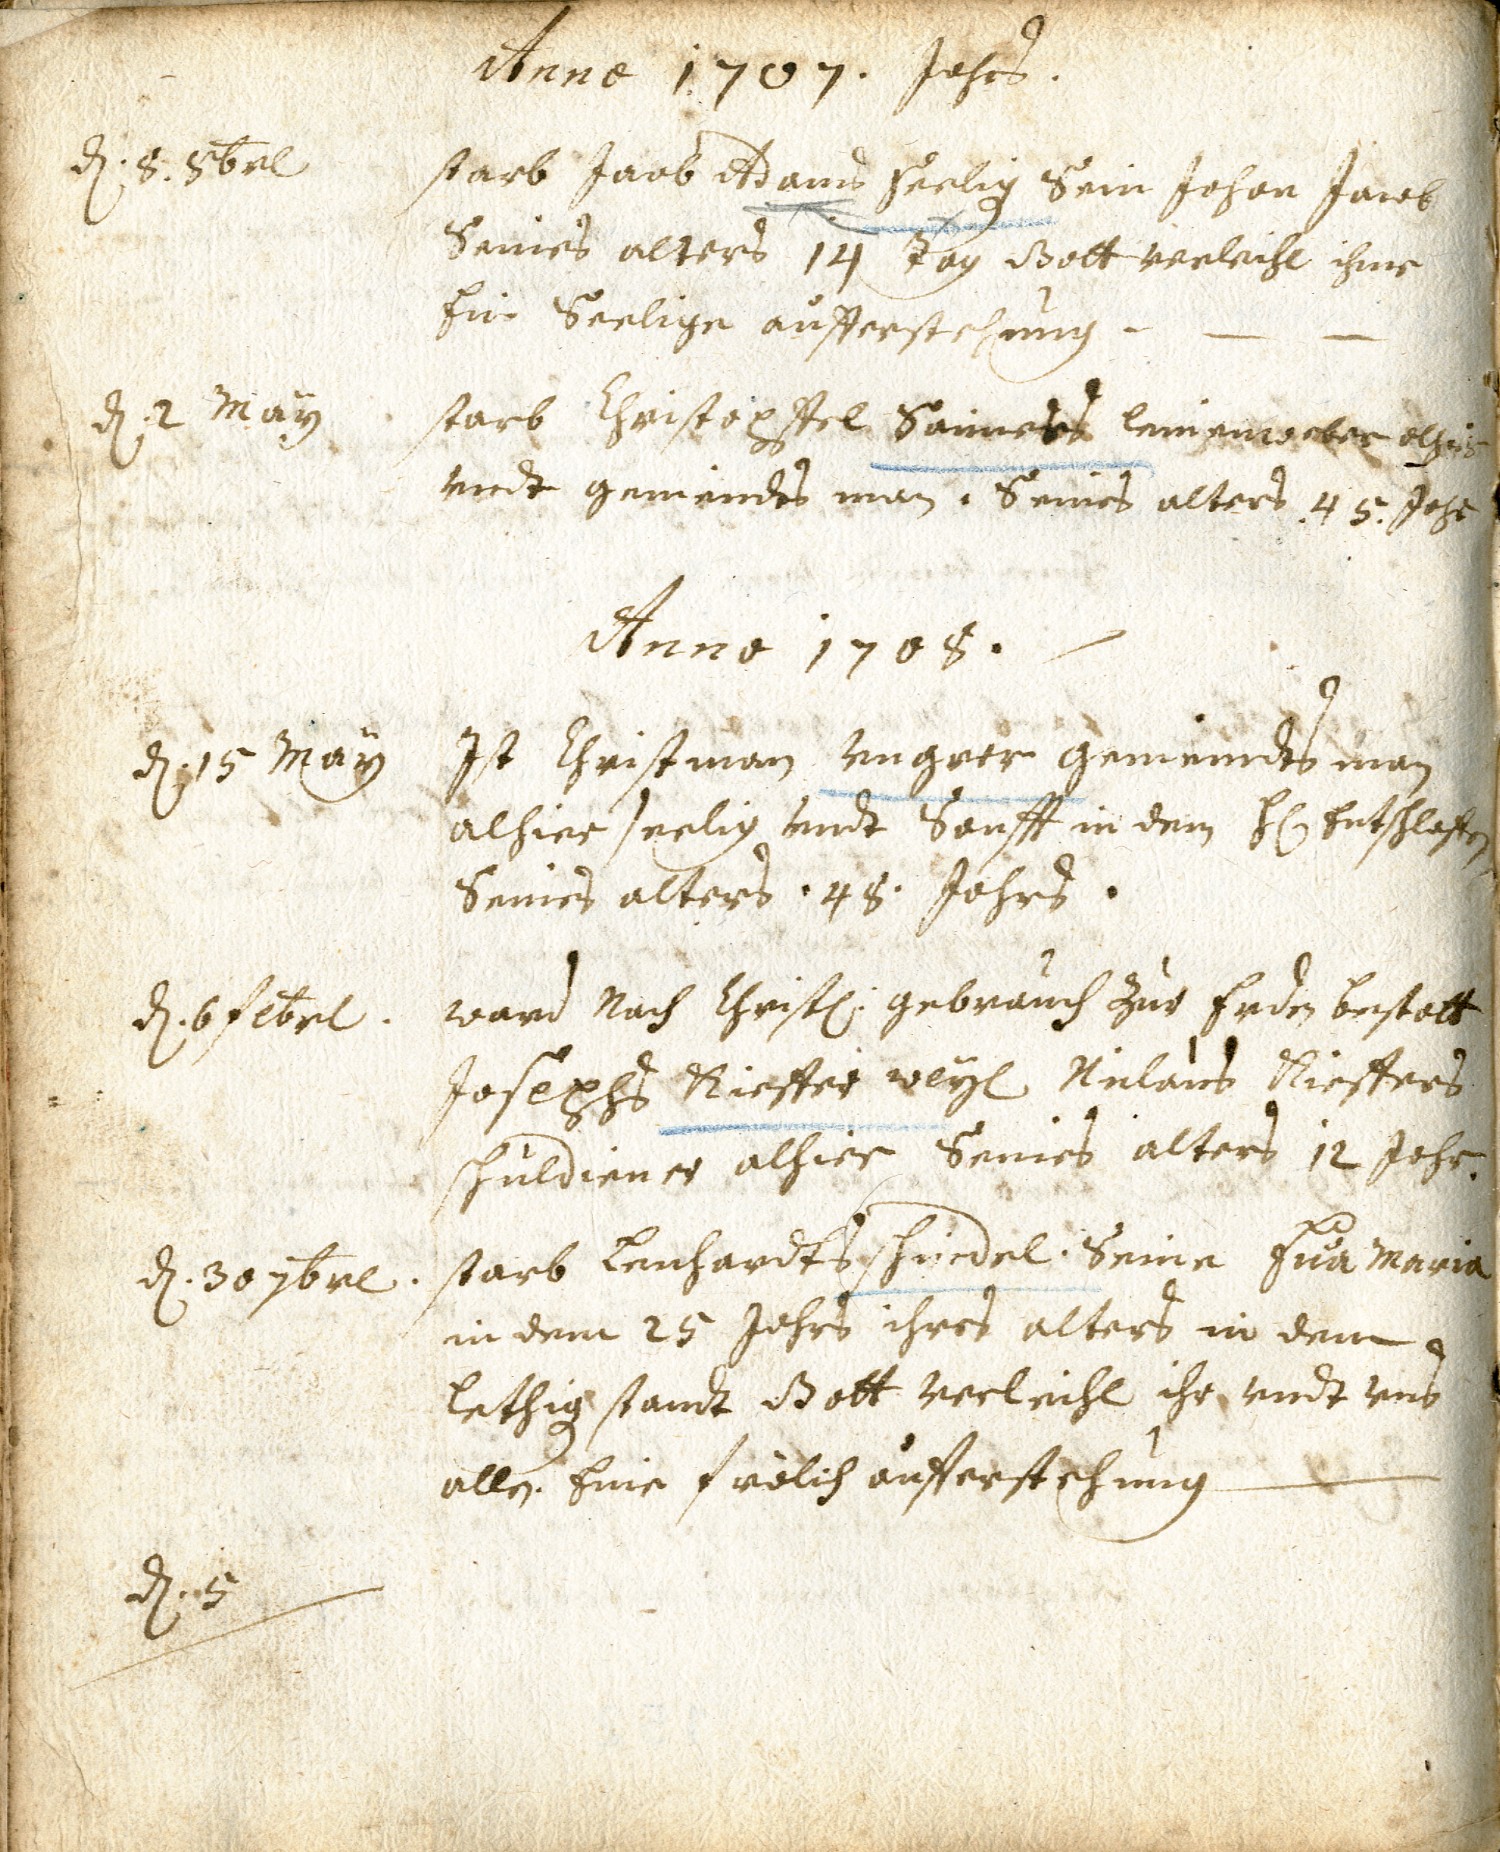 Anno 1707. Jahrs.
d. 8. 8brl starb Jacob Adams seelig Sein Johan Jacob
Seines alters 14 Tag Gott verleihe ihme
Ein Seelige aufferstehung - — —
d. 2 May starb Christoffel leinenweber alhie
undt gemeindts man. Seines alters .45. Jahr
Anno 1708.
d. 15 May Ist Christman Ungrer gemeindts man
alhier seelig undt Sanfft in dem H. Entschlaffen
Seines alters .48. Jahrs.
d. 6 febrl. ward Nach Christl. gebrauch Zur Erden bestatt
Josephs Rieffer weyl Niclaus Rieffers
schuldiener alhier Seines alters 12 Jahr.
d. 30 7brl. starb Lenhardts Seine Eva Maria
in dem 25 Jahrs ihres alters in dem
lethig standt Gott verleihe ihr undt uns
allen Eine frölich aufferstehung —
d. 5